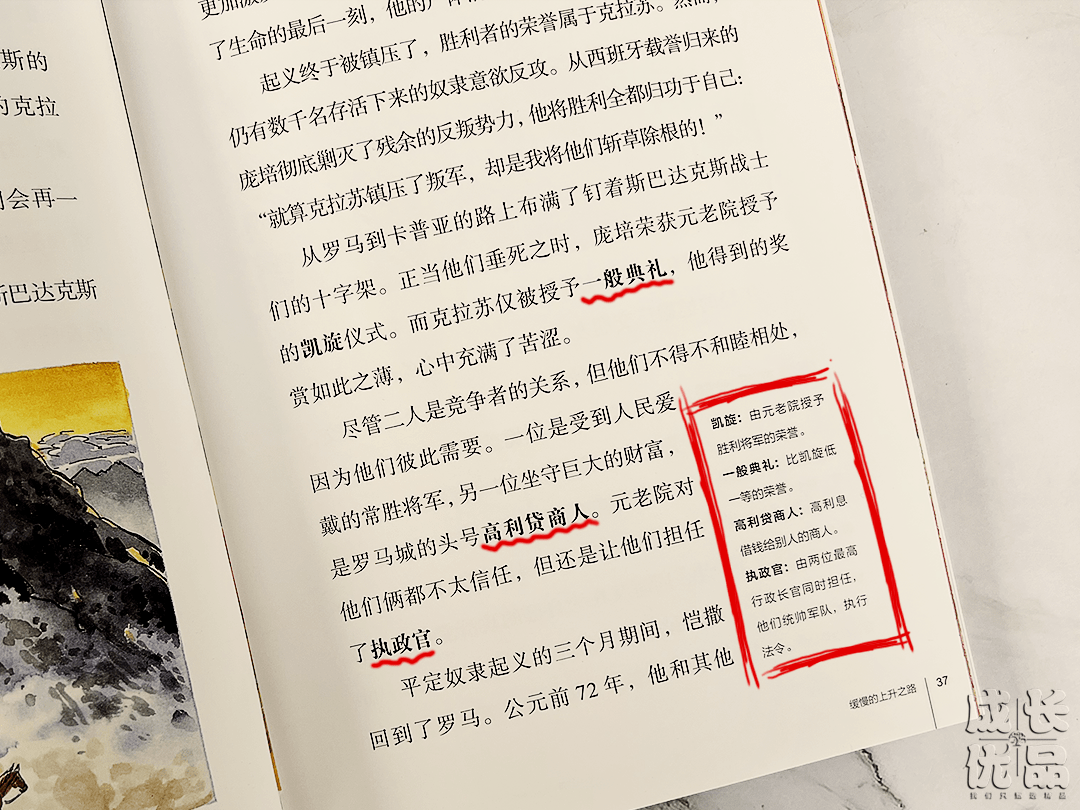 斯的
的克拉
会再一
斯巴达克斯
了生命的最后一刻，他的
起义终于被镇压了，胜利者的荣誉属于克拉苏。然而，
仍有数千名存活下来的奴隶意欲反攻。从西班牙载誉归来的
庞培彻底剿灭了残余的反叛势力，他将胜利全都归功于自己：
“就算克拉苏镇压了叛军，却是我将他们斩草除根的！”
从罗马到卡普亚的路上布满了钉着斯巴达克斯战士
们的十字架。正当他们垂死之时，庞培荣获元老院授予
的凯旋仪式。而克拉苏仅被授予一般典礼，他得到的奖
赏如此之薄，心中充满了苦涩。
尽管二人是竞争者的关系，但他们不得不和睦相处，
因为他们彼此需要。一位是受到人民爱
戴的常胜将军，另一位坐守巨大的财富，
是罗马城的头号高利贷商人。元老院对
他们俩都不太信任，但还是让他们担任
了执政官。
平定奴隶起义的三个月期间，恺撒
回到了罗马。公元前 72 年，他和其他
凯旋：由元老院授予
胜利将军的荣誉。
一般典礼：比凯旋低
一等的荣誉。
高利贷商人：高利息
借钱给别人的商人。
执政官：由两位最高
行政长官同时担任，
他们统帅军队，执行
法令。
缓慢的上升之路
37
成长
优品